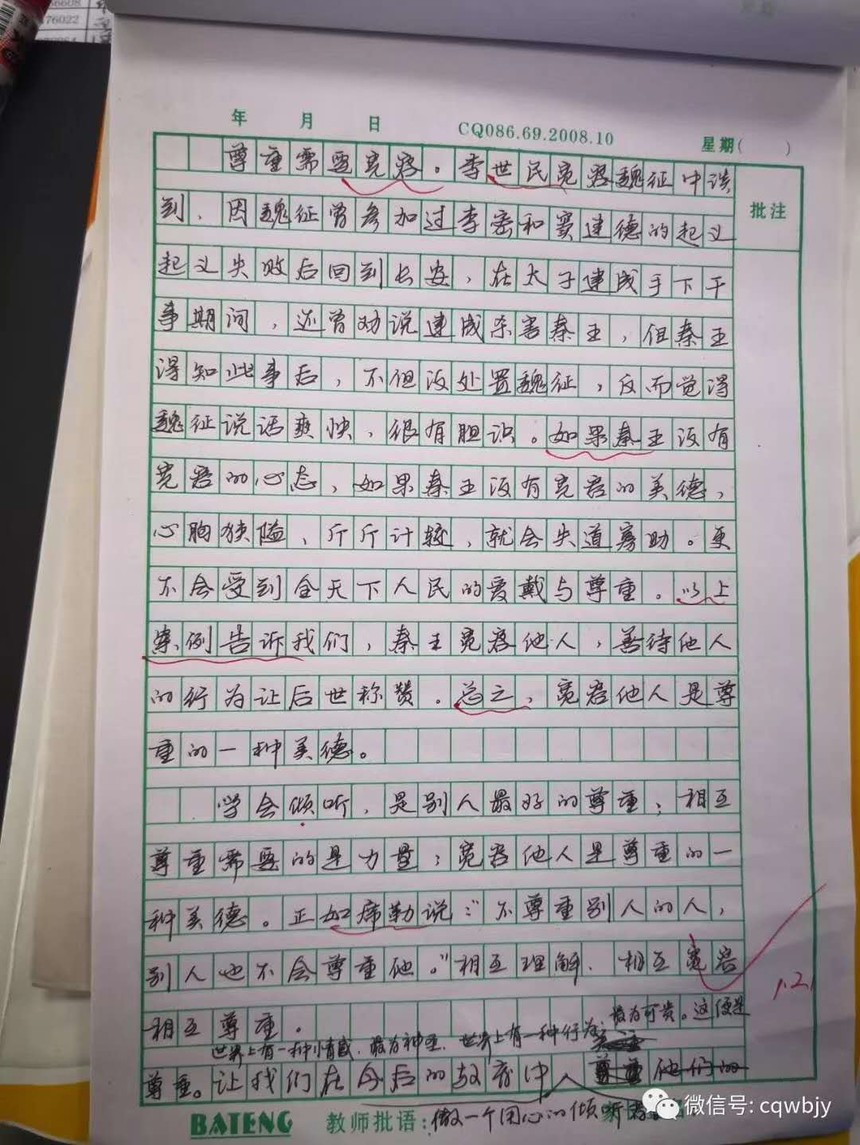 76022
年 月 日 CQ086.69.2008.10 星期( )
批注
尊重需要宽容。李世民宽容魏征中谈
到，因魏征曾参加过李密和窦建德的起义
起义失败后回到长安，在太子建成手下干
事期间，还曾劝说建成杀害秦王，但秦王
得知此事后，不但没处置魏征，反而觉得
魏征说话爽快，很有胆识。如果秦王没有
宽容的心态，如果秦王没有宽容的美德，
心胸狭隘，斤斤计较，就会失道寡助。更
不会受到全天下人民的爱戴与尊重。以上
案例告诉我们，秦王宽容他人，善待他人
的行为让后世称赞。总之，宽容他人是尊
重的一种美德。
学会倾听，是别人最好的尊重；相互
尊重需要的是力量；宽容他人是尊重的一
种美德。正如席勒说：“不尊重别人的人，
别人也不会尊重他。”相互理解，相互宽容
相互尊重。
世界上有一种情感，最为神圣，世界上有一种行为，最为可贵。这便是
尊重。让我们在今后的教育中 尊重他们的
BATENG 教师批语：做一个用心的倾听
微信号: cqwbjy